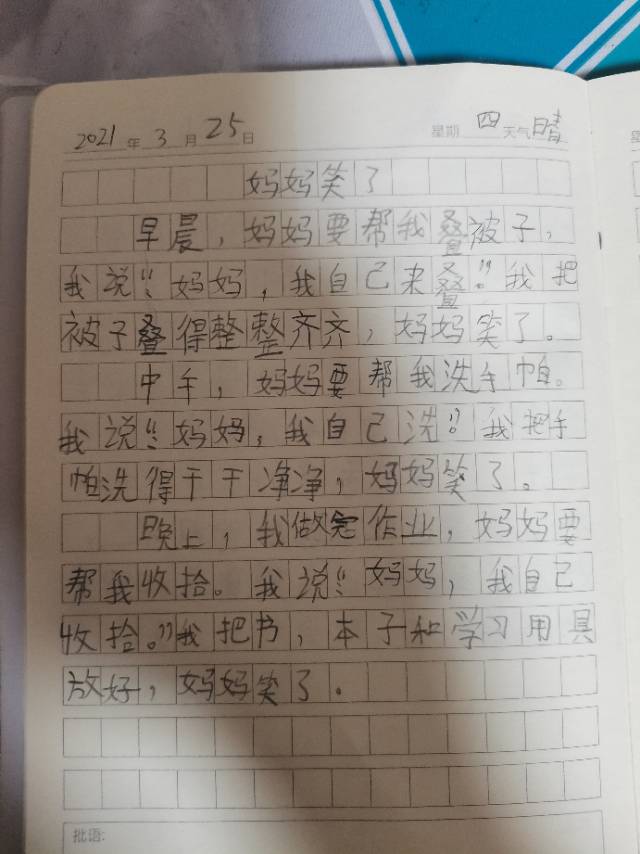 2021年3月25日 星期四 天气晴
妈妈笑了
早晨，妈妈要帮我叠被子，
我说：“妈妈，我自己来叠。”我把
被子叠得整整齐齐，妈妈笑了。
中午，妈妈要帮我洗手帕。
我说：“妈妈，我自己洗。”我把手
帕洗得干干净净，妈妈笑了。
晚上，我做完作业，妈妈要
帮我收拾。我说：“妈妈，我自己
收拾。”我把书，本子和学习用具
放好，妈妈笑了。
批语: